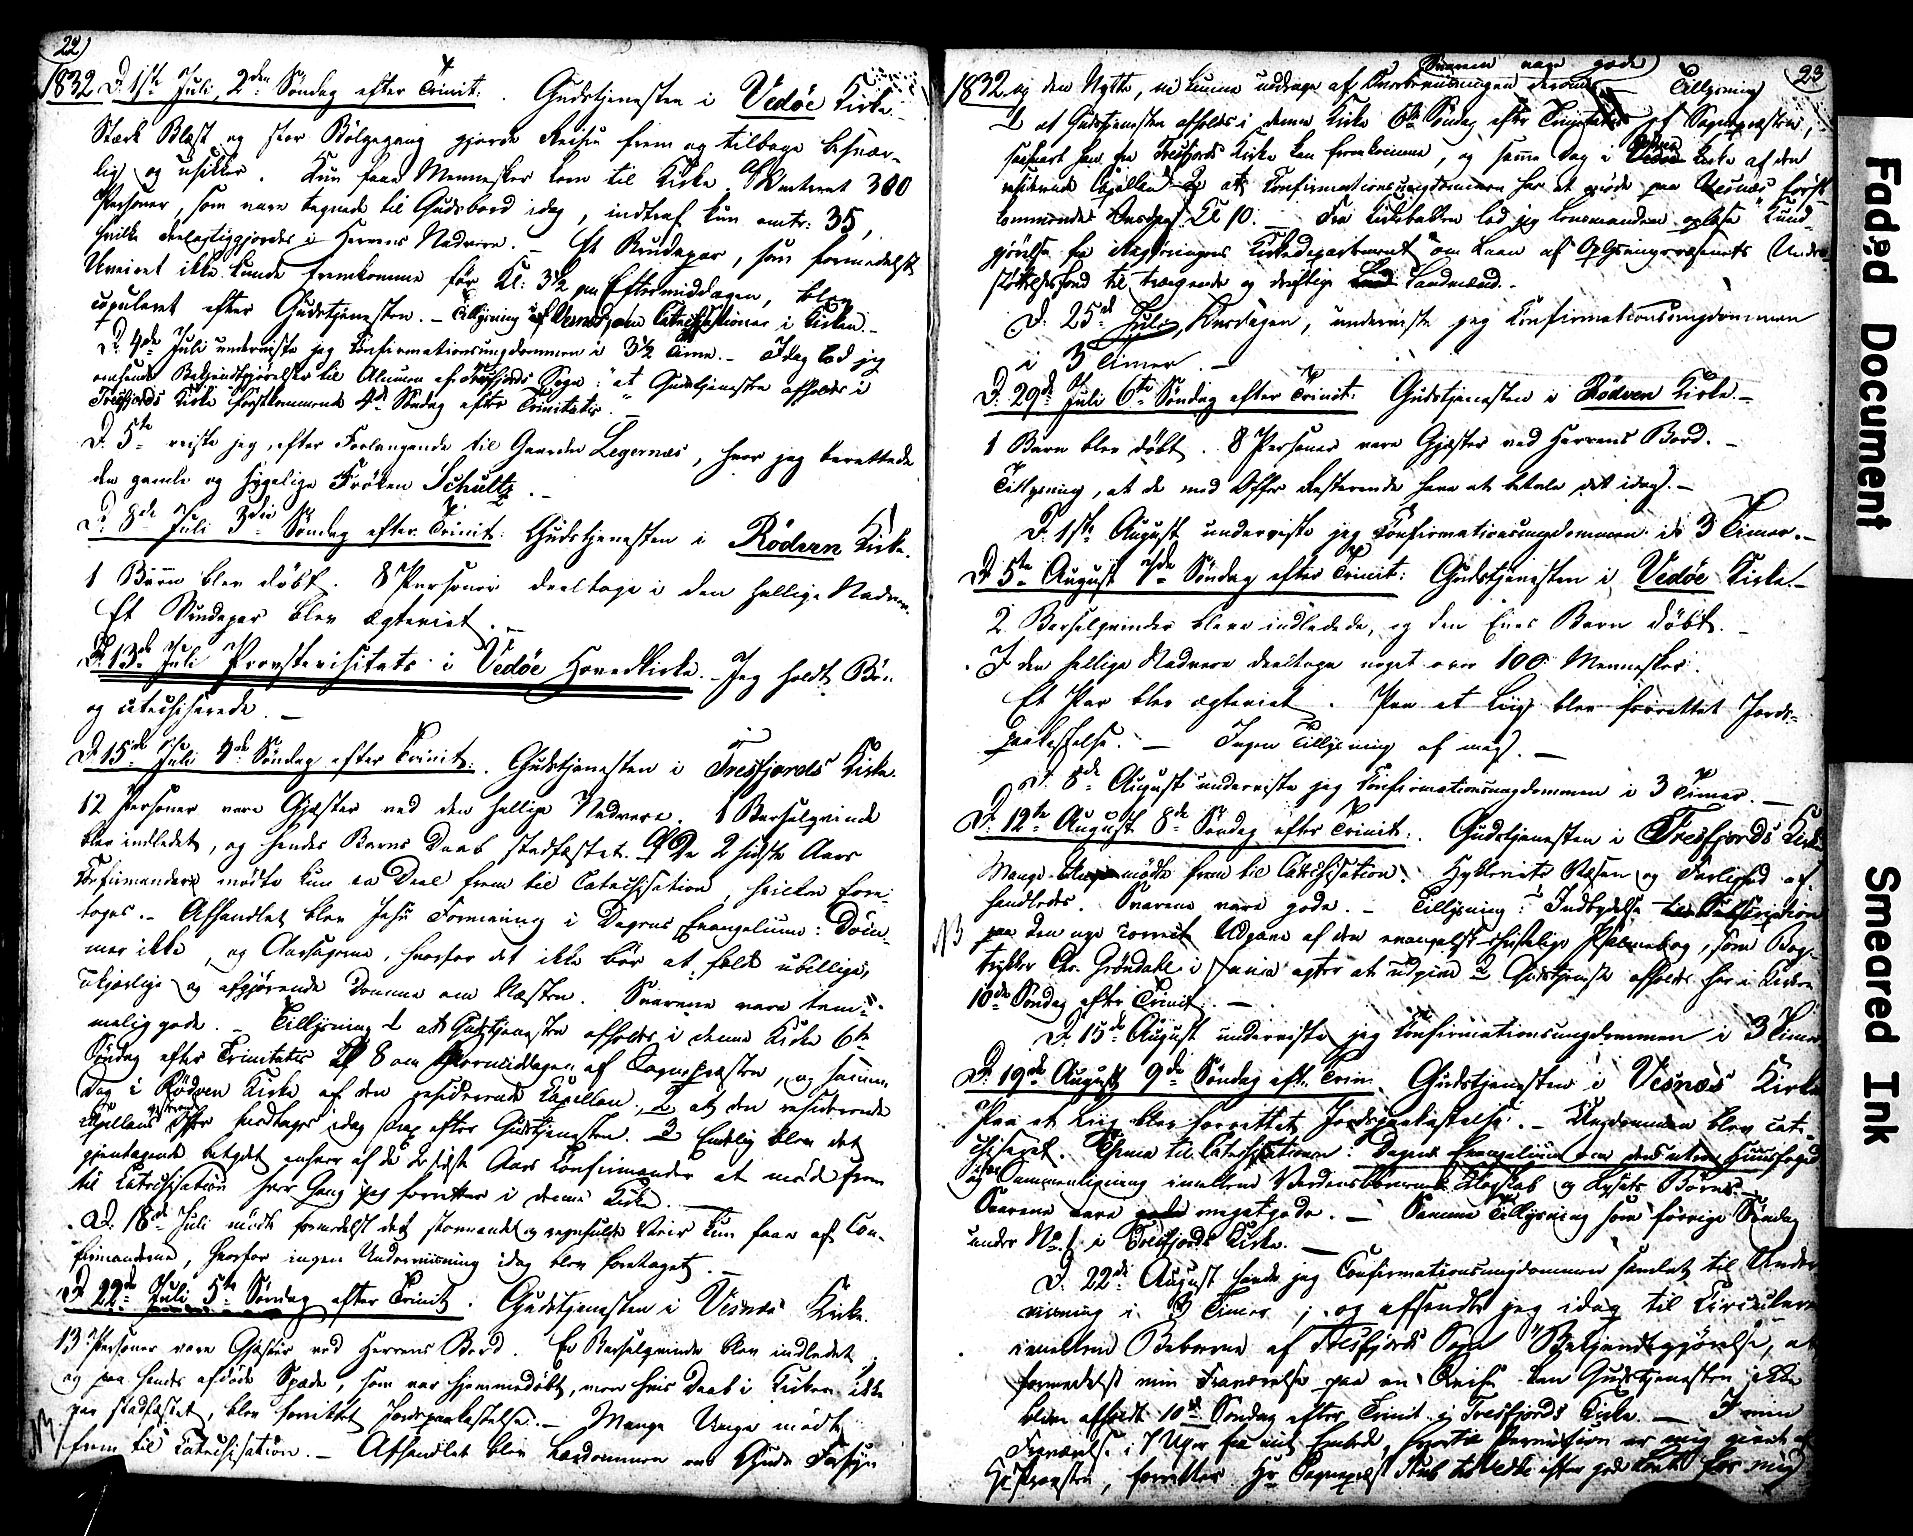 22)
1832 D. 1ste Juli, 2den Søndag efter Trinit: . Gudstjenesten i Vedøe Kirke.
Stærk Blæst og stor Bølgegang gjorde Reisen frem og tilbage besvær-
lig og usikker. Kun faa Mennesker kom til Kirke. Skrevet 300
Personer, som vare tegnede til Gudsbord idag, indtraf kun omtr: 35,
hvilke deelagtiggjordes i Herrens Nadvere. – Et Brudepar, som formedelst
Uveiret ikke kunde fremkomme før Kl: 3½ om Eftermiddagen, blev
copuleret efter Gudstjenesten. – Tillysning om Catechisationer i Kirken. –
D. 4de Juli underviste jeg Confirmationsungdommen i 3½ Time. – Idag lod jeg
omsende Bekjendtgjørelse til Almuen af Tresfjords Sogn: "at Gudstjeneste afholdes i
Tresfjords Kirke førstkommende 4de Søndag efter Trinitatis". –
D. 5te reiste jeg, efter Forlangende til Gaarden Legernæs, hvor jeg berettede
den gamle og sygelige Frøken Schultz. –
D. 8de Juli 3die Søndag efter Trinit: Gudstjenesten i Rödven Kirke.
1 Barn blev døbt. 8 Personer deeltoge i den hellige Nadvere.
Et Brudepar blev ægteviet. –
D. 13de Juli Provstevisitats i Vedøe Hovedkirke. – Jeg holdt Bøn
og catechiserede. –
D. 15de Juli 4de Søndag efter Trinit: . Gudstjenesten i Tresfjords Kirke.
12 Personer vare Gjæster ved den hellige Nadvere. 1 Barselqvinde
blev indledet, og hendes Barns Daab stadfæstet. Af De 2 sidste Aars
Confirmander mødte kun en Deel frem til Catechisation, hvilken fore-
toges. – Afhandlet blev Jesu Formaning i Dagens Evangelium: Døm-
mer ikke, og Aarsagerne, hvorfor det ikke bør at fælde ubillige,
ukjærlige og afgjørende Domme om Næsten. Svarene vare tem-
melig gode. – Tillysning 1 at Gudstjenesten afholdes i denne Kirke 6te
Søndag efter Trinitatis Kl 8 om Formiddagen af Sognepræsten, og samme
Dag i Rødven Kirke af den residerende Capellan, 2 at den residerende
Capellans Offer modtages idag strax efter Gudstjenesten. 3 Endelig blev det
gjentagende betydet enhver af de 2 sidste Aars Confirmander at møde frem
til Catechisation hver Gang jeg forretter i denne Kirke. –
D. 18de Juli mødte formedelst det stormende og regnfulde Veir kun faae af Con-
firmanderne, hvorfor ingen Underviisning idag blev foretaget. –
D. 22de Juli 5te Søndag efter Trinit: . Gudstjenesten i Vesnæs Kirke.
13 Personer vare Gjæster ved Herrens Bord. En Barselqvinde blev indledet,
og paa hendes afdøde Spæde, som var hjemmedøbt, men hvis Daab i Kirken ikke
var stadfæstet, blev forrettet Jordpaakastelse. – Mange Unge mødte
frem til Catechisation. – Afhandlet blev Lærdommen om Guds Forsyn
NB
23
1832 og den Nytte, vi kunne uddrage af Overbeviisningen derom. Svarene vare gode Tillysning
1 at Gudstjenesten afholdes i denne Kirke 6te Søndag efter Trinitatis af Sognepræsten,
saasnart han fra Tresfjords Kirke kan fremkomme, og samme Dag i Rødven Kirke af den
residerende Capellan. 2 at Confirmationsungdommen har at møde paa Vesnæs først-
kommende Onsdag Kl 10. – Fra Kirkebakken lod jeg Lensmanden oplæse "Kund-
gjørelse fra Regjeringens Kirkedepartement" om Laan af Oplysningsvæsenets Under-
støttelsesfond til trængende og driftige Landmænd. –
D. 25de Juli, Onsdagen, underviste jeg Confirmationsungdommen
i 3 Timer. –
D. 29de Juli 6te Søndag efter Trinit: Gudstjenesten i Rödven Kirke. –
1 Barn blev døbt. 8 Personer vare Gjæster ved Herrens Bord. –
Tillysning, at de med Offer Resterende have at betale det idag. –
D. 1ste August underviste jeg Confirmationsungdommen i 3 Timer. –
D. 5te August 7de Søndag efter Trinit: Gudstjenesten i Vedøe Kirke. –
2 Barselqvinder bleve indledede, og den Enes Barn døbt. –
I den hellige Nadvere deeltoge noget over 100 Mennesker.
Et Par blev ægteviet. Paa et Liig blev forrettet Jords-
paakastelse. – Ingen Tillysning af mig. –
D. 8de August underviste jeg Confirmationsungdommen i 3 Timer. –
D. 12te August 8de Søndag efter Trinit: . Gudstjenesten i Tresfjords Kirke
Mange Unge mødte frem til Catechisation. Hykleriets Væsen og Farlighed af-
handledes. Svarene vare gode. – Tillysning: 1 Indbydelse til Subscription
NB paa den nye Udgave af den evangelisk-christelige Psalmebog, som Bog-
trykker Chr. Grøndahl i agter at udgive 2 Gudstjeneste afholdes her i Kirken
10de Søndag efter Trinit. –
D. 15de August underviste jeg Confirmationsungdommen i 3 Timer
D. 19de August 9de Søndag eft. Trin. Gudstjenesten i Vesnæs Kirke
Paa et Liig blev forrettet Jordpaakastelse. – Ungdommen blev cate-
chiseret. Thema til Catechisationen: Dagens Evangelium om den utro Huusfoged
og Sammenligning imellem Verdensbørnenes Klogskab og Lysets Børns. –
Svarene vare meget gode. – Samme Tillysning som forrige Søndag
under No. 1 i Tresfjords Kirke. –
D. 22de August havde jeg Confirmationsungdommen samlet til Under-
viisning i 3 Timer, og afsendte jeg idag til Circulere
imellem Beboerne af Tresfjords Sogn "Bekjendtgjørelse, at
formedelst min Fraværelse paa en Reise kan Gudstjenesten ikke
blive afholdt 10de Søndag efter Trinit. i Tresfjords Kirke. – I min
Fraværelse i 7 Uger fra mit Embede, hvortil Permission er mig givet af
Hr Provsten, forretter Hr Sognepræst Stub til Vedøe efter for mig
Faded Document
Smeared Ink